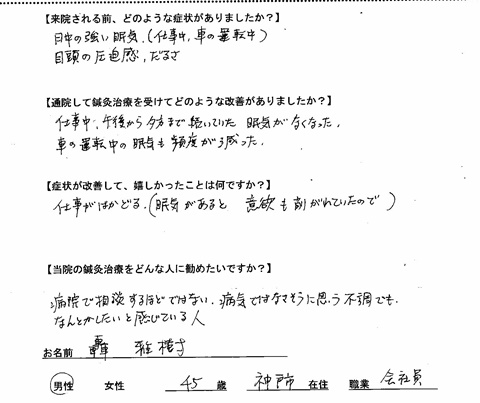 【来院される前、どのような症状がありましたか？】
日中の強い眠気。(仕事中、車の運転中)
目頭の圧迫感、だるさ
【通院して鍼灸治療を受けてどのような改善がありましたか？】
仕事中、午後から夕方まで続いていた 眠気がなくなった。
車の運転中の眠気も頻度が減った。
【症状が改善して、嬉しかったことは何ですか？】
仕事がはかどる。(眠気があると 意欲も削がれていたので)
【当院の鍼灸治療をどんな人に勧めたいですか？】
病院で相談するほどではない、病気ではなさそうに思う不調でも、
なんとかしたいと感じている人
お名前 轟 雅樹
男性 女性 45 歳 神戸市 在住 職業 会社員